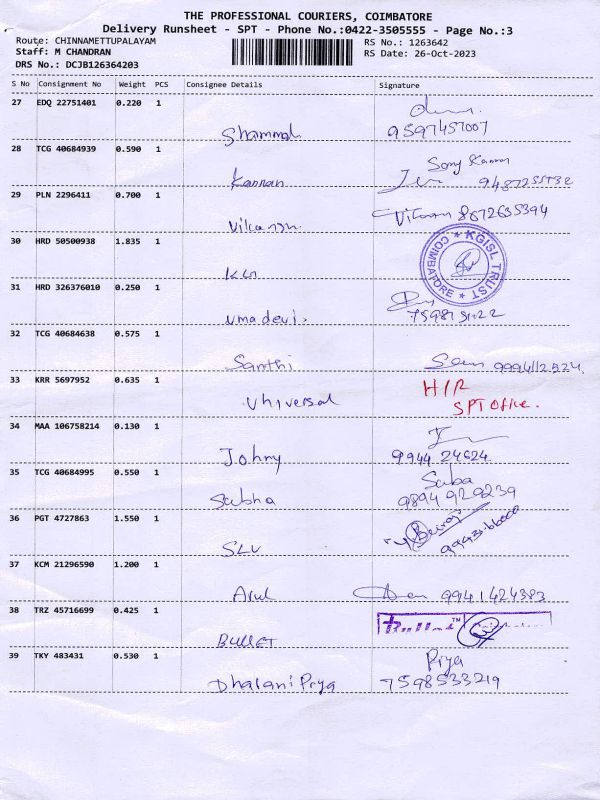 THE PROFESSIONAL COURIERS, COIMBATORE
Delivery Runsheet - SPT - Phone No.:0422-3505555 - Page No.:3
Route: CHINNAMETTUPALAYAM
RS No.: 1263642
Staff: M CHANDRAN
RS Date: 26-Oct-2023
DRS No.: DCJB126364203
S No Consignment No Weight PCS Consignee Details Signature
27 EDQ 22751401 0.220 1
9597457007
28 TCG 40684939 0.590 1
Sony Kannan
Kannan
29 PLN 2296411 0.700 1
8672635394
30 HRD 50500938 1.835 1
KGISL TRUST
COIMBATORE
31 HRD 326376010 0.250 1
Uma devi.
32 TCG 40684638 0.575 1
Santhi
33 KRR 5697952 0.635 1
H/R
Universal
SPT Office.
34 MAA 106758214 0.130 1
Johny 9944 24624
35 TCG 40684995 0.550 1
Saba
Sabha 9894 929239
36 PGT 4727863 1.550 1
SLV
37 KCM 21296590 1.200 1
Arul 99411424383
38 TRZ 45716699 0.425 1
Bullet
BULLET
39 TKY 483431 0.530 1
Priya
Dharani Priya 7598533219